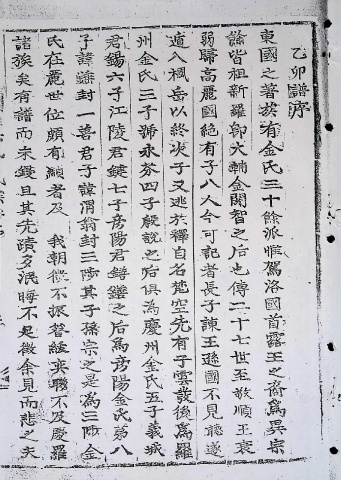 乙卯譜序
東國之著族有金氏三十餘派惟駕洛國首露王之裔爲異宗
餘皆祖新羅郞大輔金閼智之后也傳二十七世至敬順王衰
弱歸高麗國絶有子八人今可記者長子諫王遜國不見聽遂
遁入楓岳以終次子又逃於釋自名梵空先有子雲發後爲羅
州金氏三子號永芬四子殷說之后俱爲慶州金氏五子義城
君錫六子江陵君鍵七子彦陽君鐥鐥之后爲彦陽金氏第八
子諱錘封一善君子諱渭翁封三陟其子孫宗之是爲三陟金
氏在麗世位頗有顯者及 我朝微不振替紱寞聯不及慶羅
諸族矣有譜而未鋟且其先蹟多泯晦不足徵余見而悲之夫